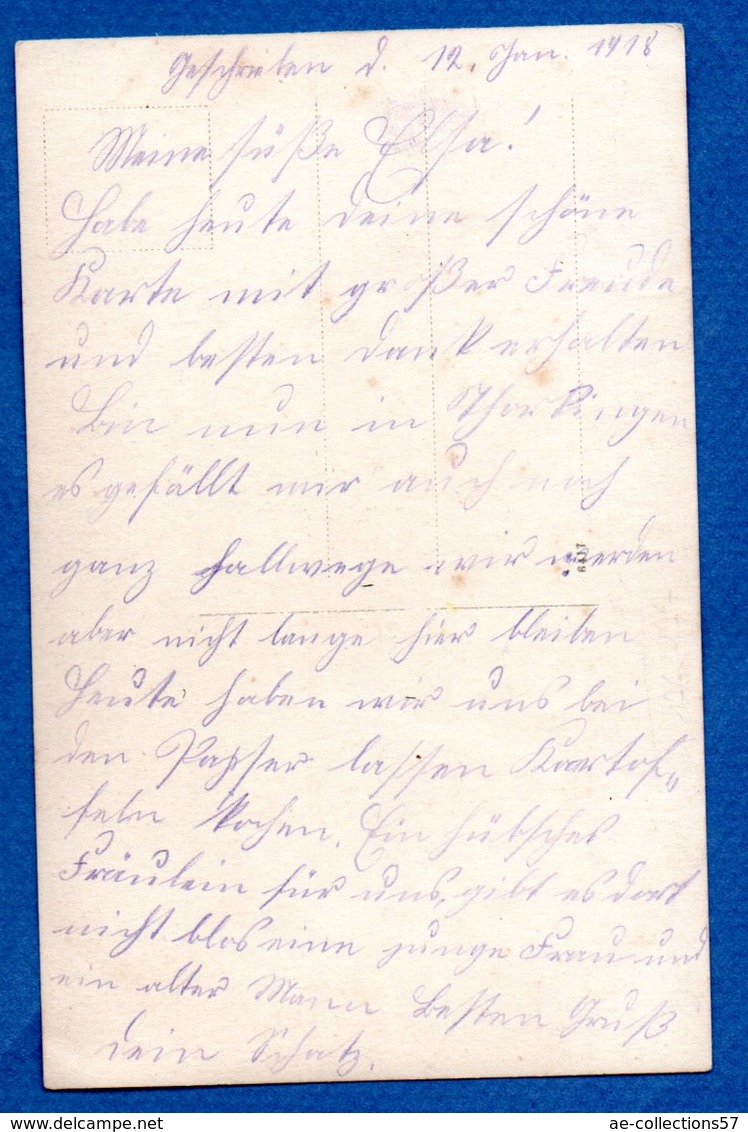 Geschrieben d. 12. Jan. 1918
Meine süße Elsa!
Habe heute deine schöne
Karte mit großer Freude
und besten dank erhalten
Bin nun in
es gefällt mir auch noch
ganz hallwege wir werden
aber nicht lange hier bleiben
Heute haben wir uns bei
den lassen Kartof„
feln kochen. Ein hübsches
Fräulein für uns, gibt es dort
nicht blos eine junge Frau und
ein alter Mann Besten Gruß
dein Schatz.
6417
ae-collections57